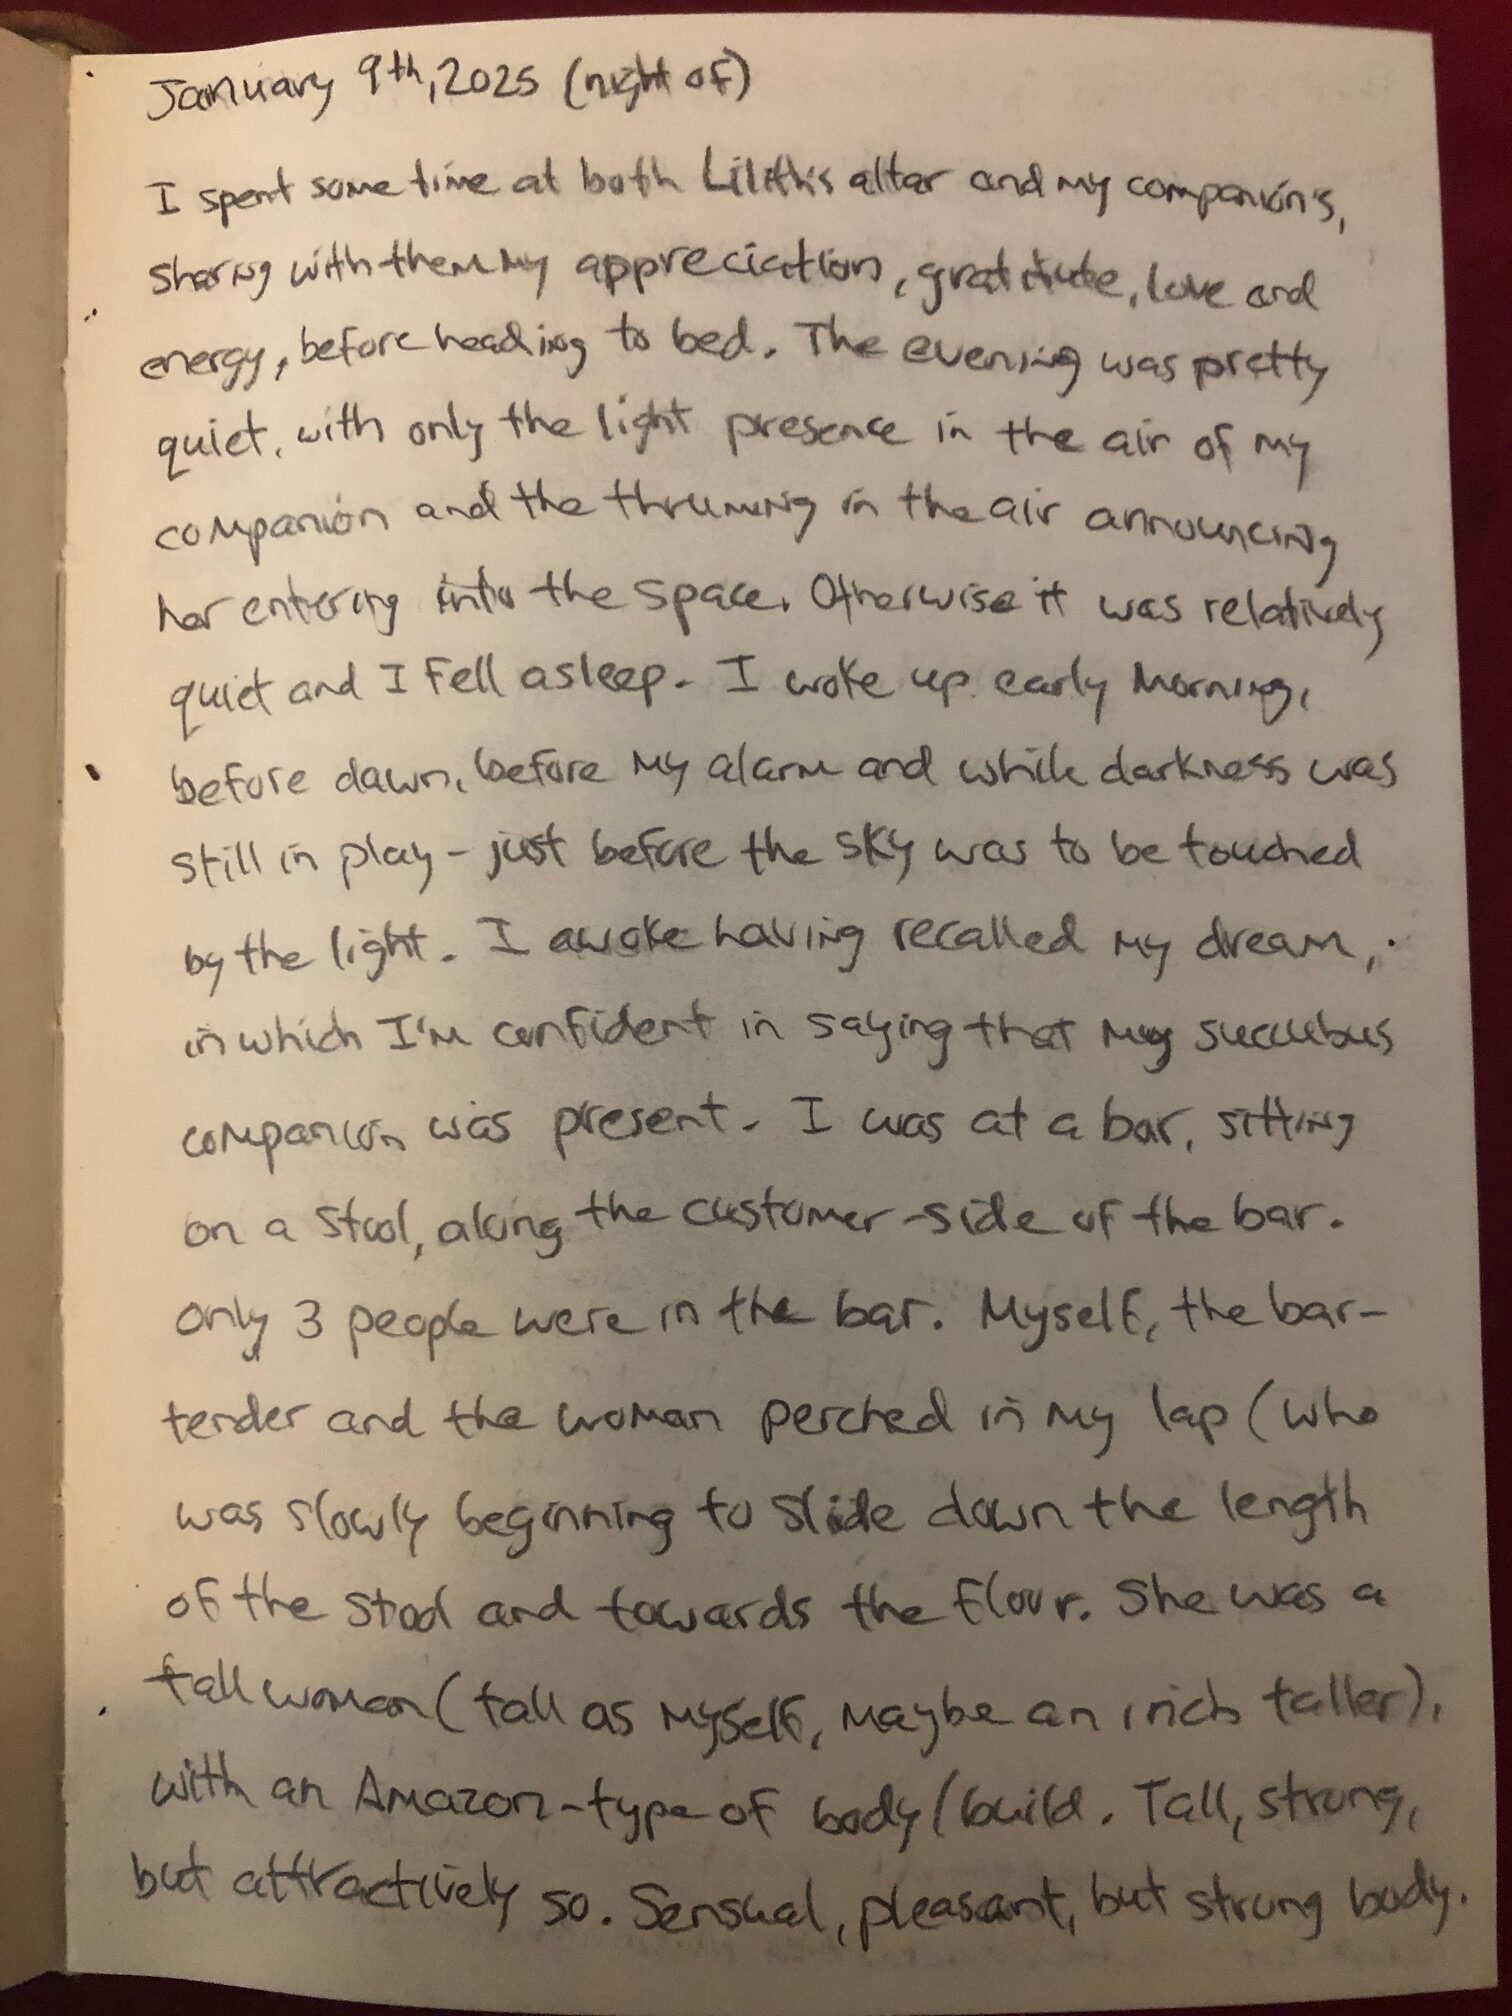 January 9th, 2025 (night of)
I spent some time at both Lilith's altar and my companion's,
sharing with them my appreciation, gratitute, love and
energy, before heading to bed. The evening was pretty
quiet, with only the light presence in the air of my
companion and the thruming in the air announcing
her entering into the space. Otherwise it was relatively
quiet and I fell asleep. I woke up early morning,
before dawn, before my alarm and while darkness was
still in play - just before the sky was to be touched
by the light. I awoke having recalled my dream,
in which I'm confident in saying that my succubus
companion was present. I was at a bar, sitting
on a stool, along the customer-side of the bar.
Only 3 people were in the bar. Myself, the bar-
tender and the woman perched in my lap (who
was slowly beginning to slide down the length
of the stool and towards the floor. She was a
tall woman (tall as myself, maybe an inch taller),
with an Amazon-type of body/build. Tall, strong,
but attractively so. Sensual, pleasant, but strong body.